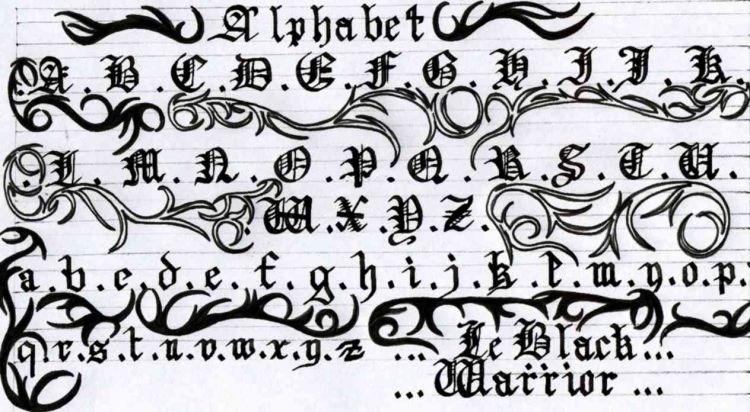 Alphabet
.A.B.C.D.E.F.G.H.I.J.K.
.L.M.N.O.P.Q.R.S.T.U.
.W.X.Y.Z.
a.b.c.d.e.f.g.h.i.j.k.l.m.n.o.p.
q.r.s.t.u.v.w.x.y.z
... Le Black...
... Warrior ...